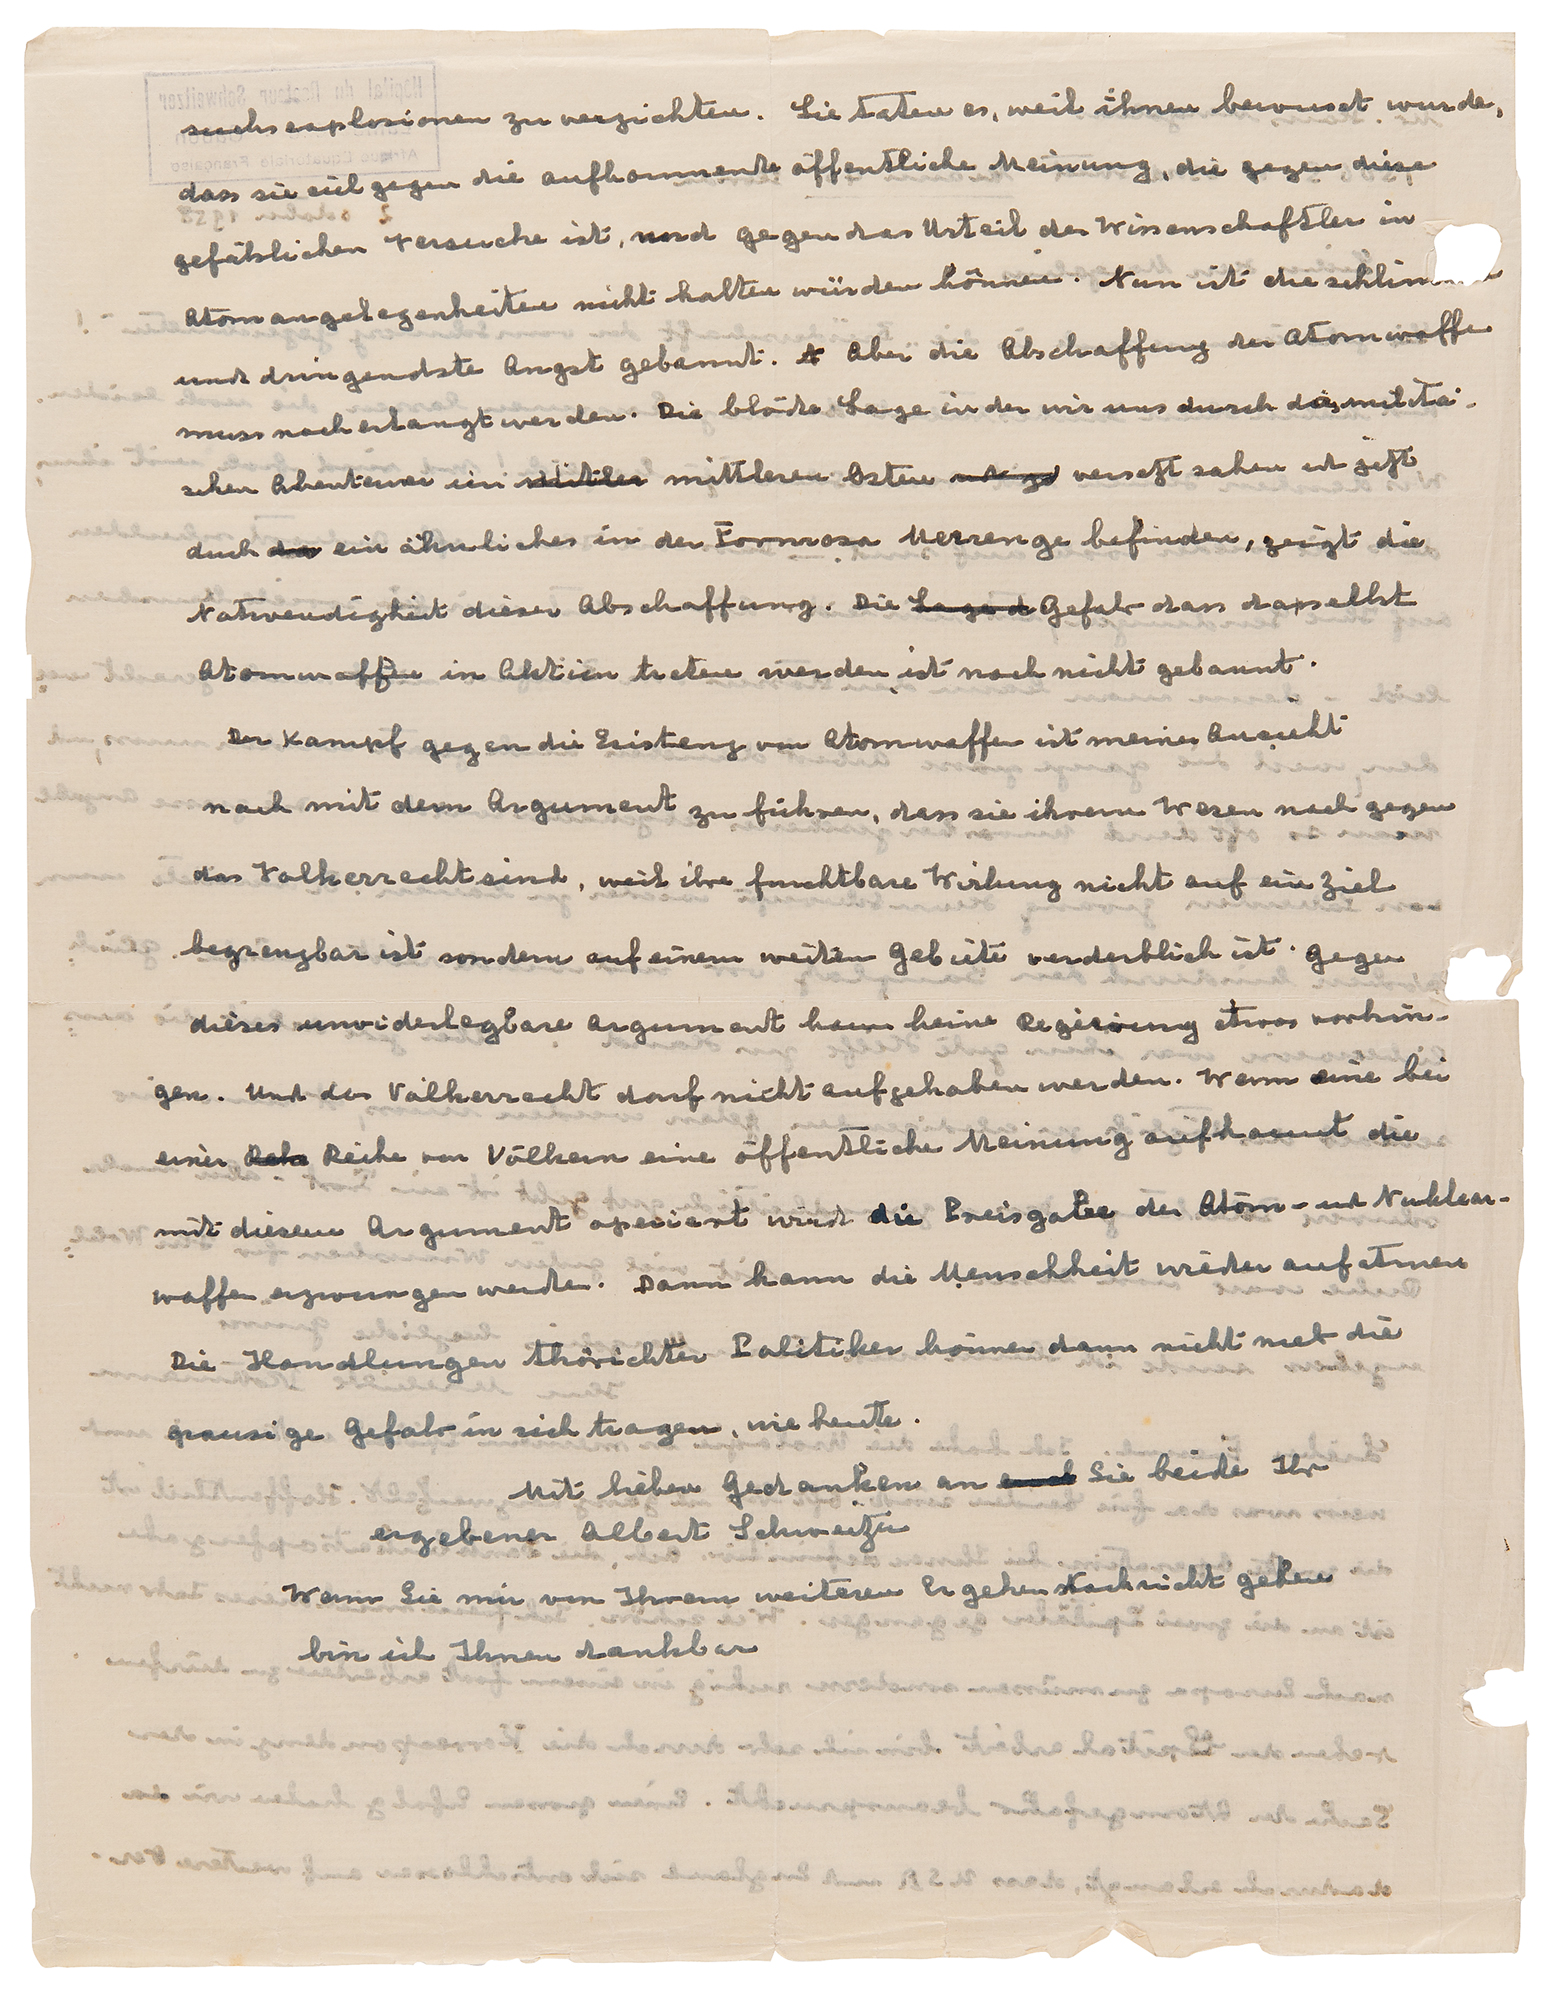 suchsexplosionen zu verzichten. Sie taten es, weil ihnen bewusst wurde,
dass sie sich gegen die aufkommende öffentliche Meinung, die gegen diese
gefährlichen Versuche ist, und gegen das Urteil der Wissenschaftler in
Atomangelegenheiten nicht halten würden können. Nun ist die schlimmste
und dringendste Angst gebannt. Aber die Abschaffung der Atomwaffen
muss noch erlangt werden. Die blöde Lage in der wir uns durch das militäi-
schen Abenteuer im mittleren Osten versetzt sahen u jetzt
durch ein ähnliches in der Formosa Merrenge befinden, zeigt die
Notwendigkeit dieser Abschaffung. Die Gefahr dass dasselbst
Atomwaffen in Aktion treten werden ist noch nicht gebannt.
Der Kampf gegen die Existenz von Atomwaffen ist meiner Ansicht
nach mit dem Argument zu führen, dass sie ihrem Wesen nach gegen
das Völkerrecht sind, weil ihre furchtbare Wirkung nicht auf ein Ziel
begrenzbar ist sondern auf einem weiten Gebiete verderblich ist. Gegen
dieses unwiderlegbare Argument kann keine Regierung etwas vorbrin-
gen. Und das Völkerrecht darf nicht aufgehoben werden. Wenn eine bei
einer Reihe von Völkern eine öffentliche Meinung aufkommt die
mit diesem Argument operiert wird die Preisgabe der Atom- und Nuklear-
waffen erzwungen werden. Dann kann die Menschheit wieder aufatmen
Die Handlungen thörichter Politiker können dann nicht mehr die
grausige Gefahr in sich tragen, wie heute.
Mit lieben Gedanken an Sie beide Ihr
ergebener Albert Schweitzer
Wenn Sie mir von Ihrem weiteren Ergehen Nachricht geben
bin ich Ihnen dankbar